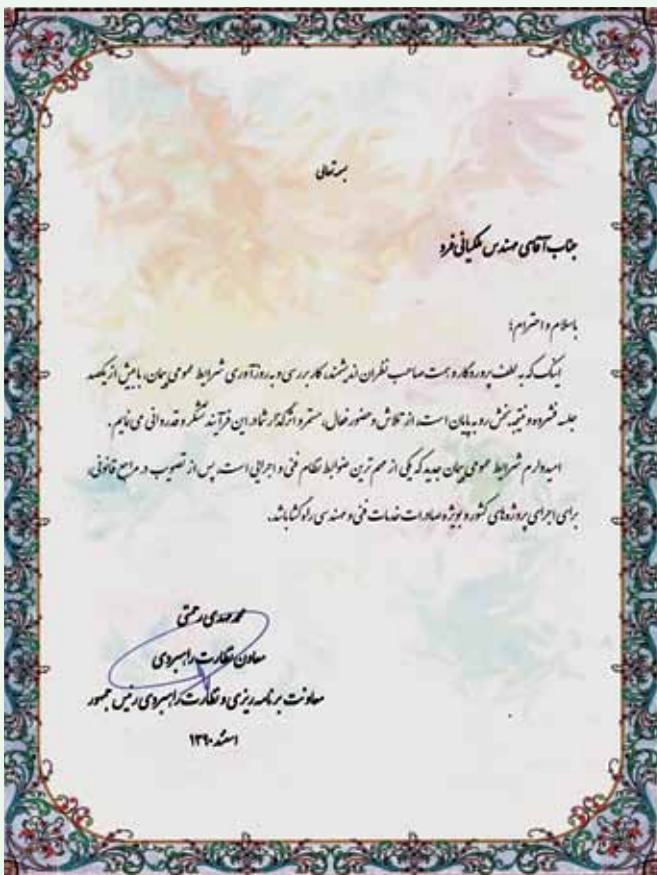 بسمه تعالی
جناب آقای مهندس ملکیانی فرد
با سلام و احترام؛
اینک که به لطف پروردگار و همت صاحب نظران اندیشمند، کار بررسی و به روزآوری شرایط عمومی پیمان، با بیش از یکصد
جلسه فشرده و نتیجه بخش رو به پایان است، از تلاش و حضور فعال، مستمر و اثرگذار شما در این فرآیند تشکر و قدردانی می نمایم.
امیدوارم شرایط عمومی پیمان جدید که یکی از مهم ترین ضوابط نظام فنی و اجرایی است، پس از تصویب در مراجع قانونی،
برای اجرای پروژه های کشور و بویژه صادرات خدمات فنی و مهندسی راه گشا باشد.
محمد مهدی رحمتی
معاون نظارت راهبردی
معاونت برنامه ریزی و نظارت راهبردی رئیس جمهور
اسفند ۱۳۹۰